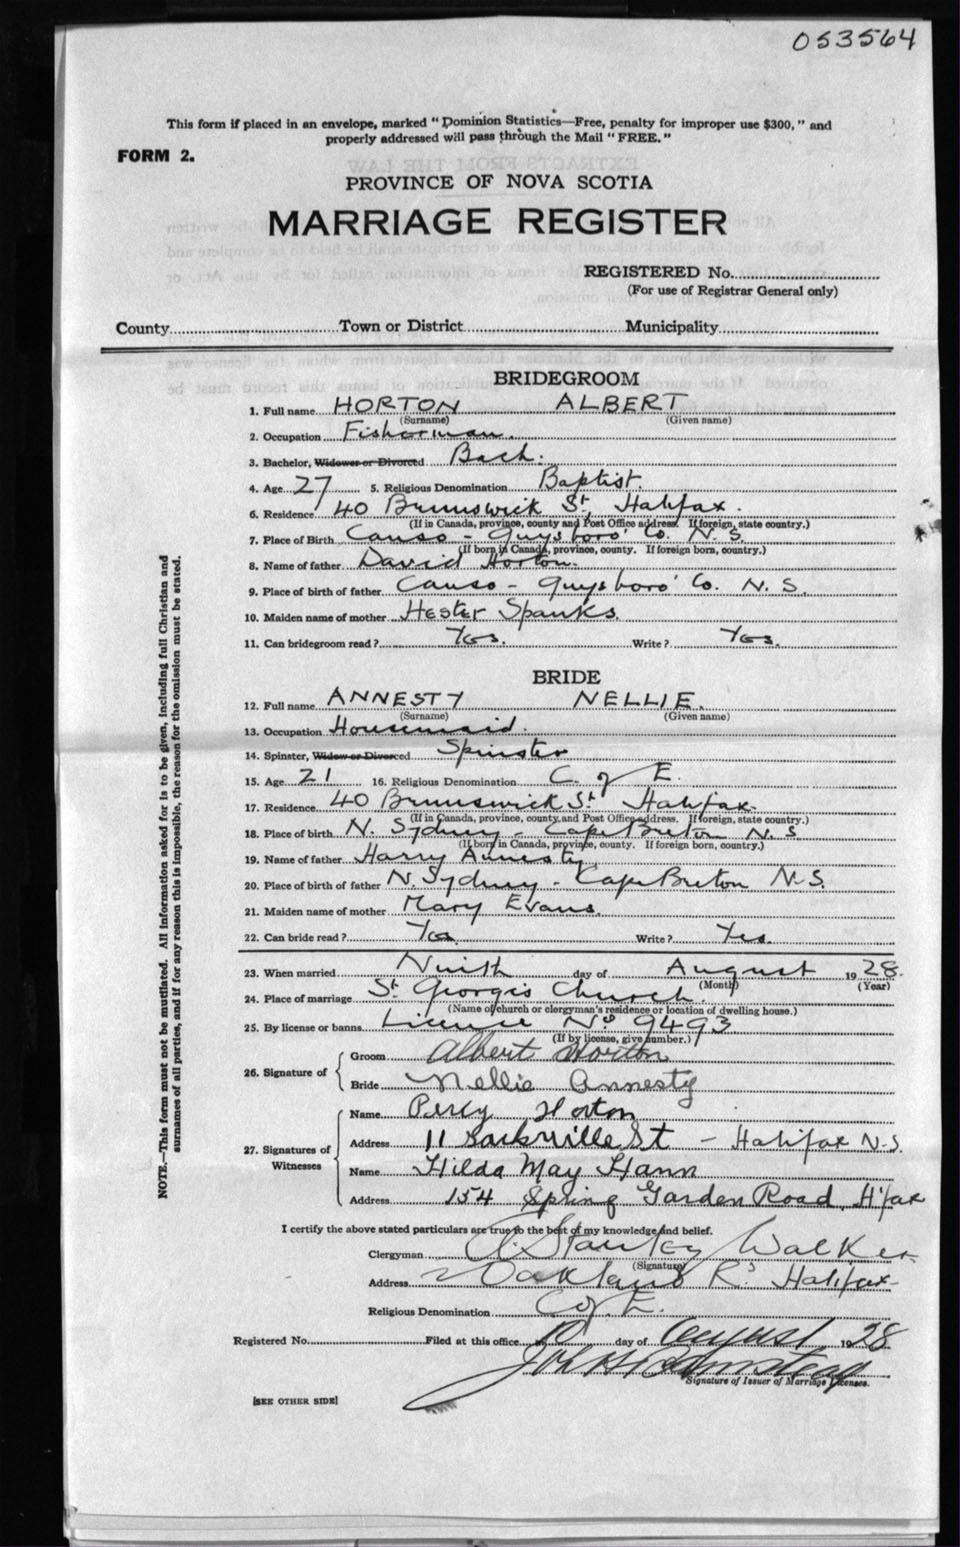 053564
This form if placed in an envelope, marked "Dominion Statistics—Free, penalty for improper use $300," and
properly addressed will pass through the Mail "FREE."
FORM 2.
PROVINCE OF NOVA SCOTIA
MARRIAGE REGISTER
REGISTERED No.
(For use of Registrar General only)
County Town or District Municipality
BRIDEGROOM
1. Full name HORTON ALBERT
(Surname) (Given name)
2. Occupation Fisherman.
3. Bachelor, Widower or Divorced Bach.
4. Age 27 5. Religious Denomination Baptist.
6. Residence 40 Brunswick St, Halifax.
(If in Canada, province, county and Post Office address. If foreign, state country.)
7. Place of Birth Canso - Guysboro' Co. N. S.
(If born in Canada, province, county. If foreign born, country.)
8. Name of father David Horton.
9. Place of birth of father Canso - Guysboro' Co. N. S.
10. Maiden name of mother Hester Spanks.
11. Can bridegroom read? Yes. Write? Yes.
BRIDE
12. Full name ANNESTY NELLIE.
(Surname) (Given name)
13. Occupation Housemaid.
14. Spinster, Widow or Divorced Spinster
15. Age 21 16. Religious Denomination C. of E.
17. Residence 40 Brunswick St Halifax.
(If in Canada, province, county, and Post Office address. If foreign, state country.)
18. Place of birth N. Sydney - Cape Breton N. S
(If born in Canada, province, county. If foreign born, country.)
19. Name of father Harry Annesty
20. Place of birth of father N. Sydney - Cape Breton N.S.
21. Maiden name of mother Mary Evans.
22. Can bride read? Yes Write? Yes.
23. When married Ninth day of August 1928.
(Month) (Year)
24. Place of marriage St George's Church.
(Name of church or clergyman's residence or location of dwelling house.)
25. By license or banns Licence No 9493
(If by license, give number.)
26. Signature of Groom Albert Horton
Bride Nellie Annesty
27. Signatures of Witnesses Name Percy Horton
Address 11 Sackville St - Halifax N.S.
Name Hilda May Hann
Address 154 Spring Garden Road H'fax
I certify the above stated particulars are true to the best of my knowledge and belief.
Clergyman Stanley Walker
(Signature)
Address Oakland Rd Halifax
Religious Denomination C of E.
Registered No. Filed at this office 10 day of August 1928
Signature of Issuer of Marriage Licenses.
[SEE OTHER SIDE]
NOTE.—This form must not be mutilated. All information asked for is to be given, including full Christian and
surnames of all parties, and if for any reason this is impossible, the reason for the omission must be stated.